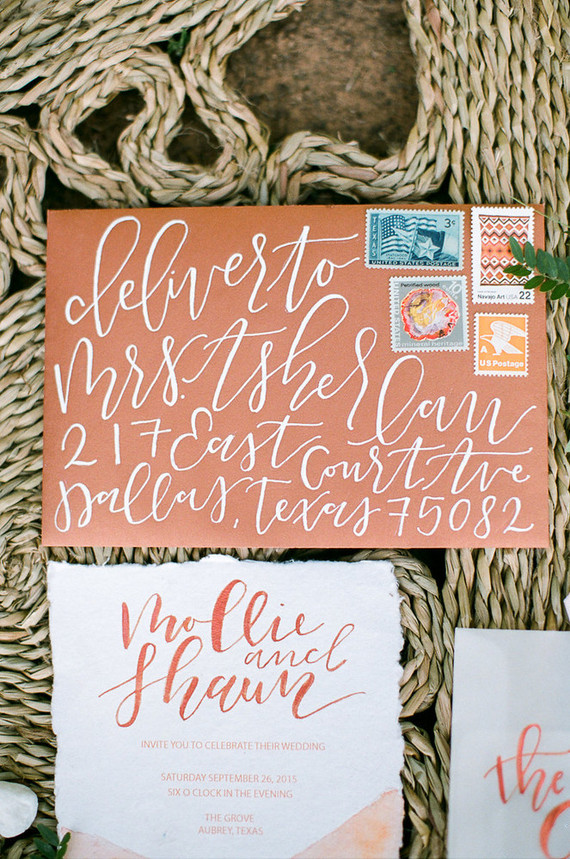 deliver to
Mrs. Asher Law
217 East Court Ave
Dallas, Texas 75082
TEXAS
3¢
UNITED STATES POSTAGE
Navajo Art USA 22
Petrified wood
10
mineral heritage
A
US Postage
Mollie
and
Shaun
INVITE YOU TO CELEBRATE THEIR WEDDING
SATURDAY SEPTEMBER 26, 2015
SIX O CLOCK IN THE EVENING
THE GROVE
AUBREY, TEXAS
the